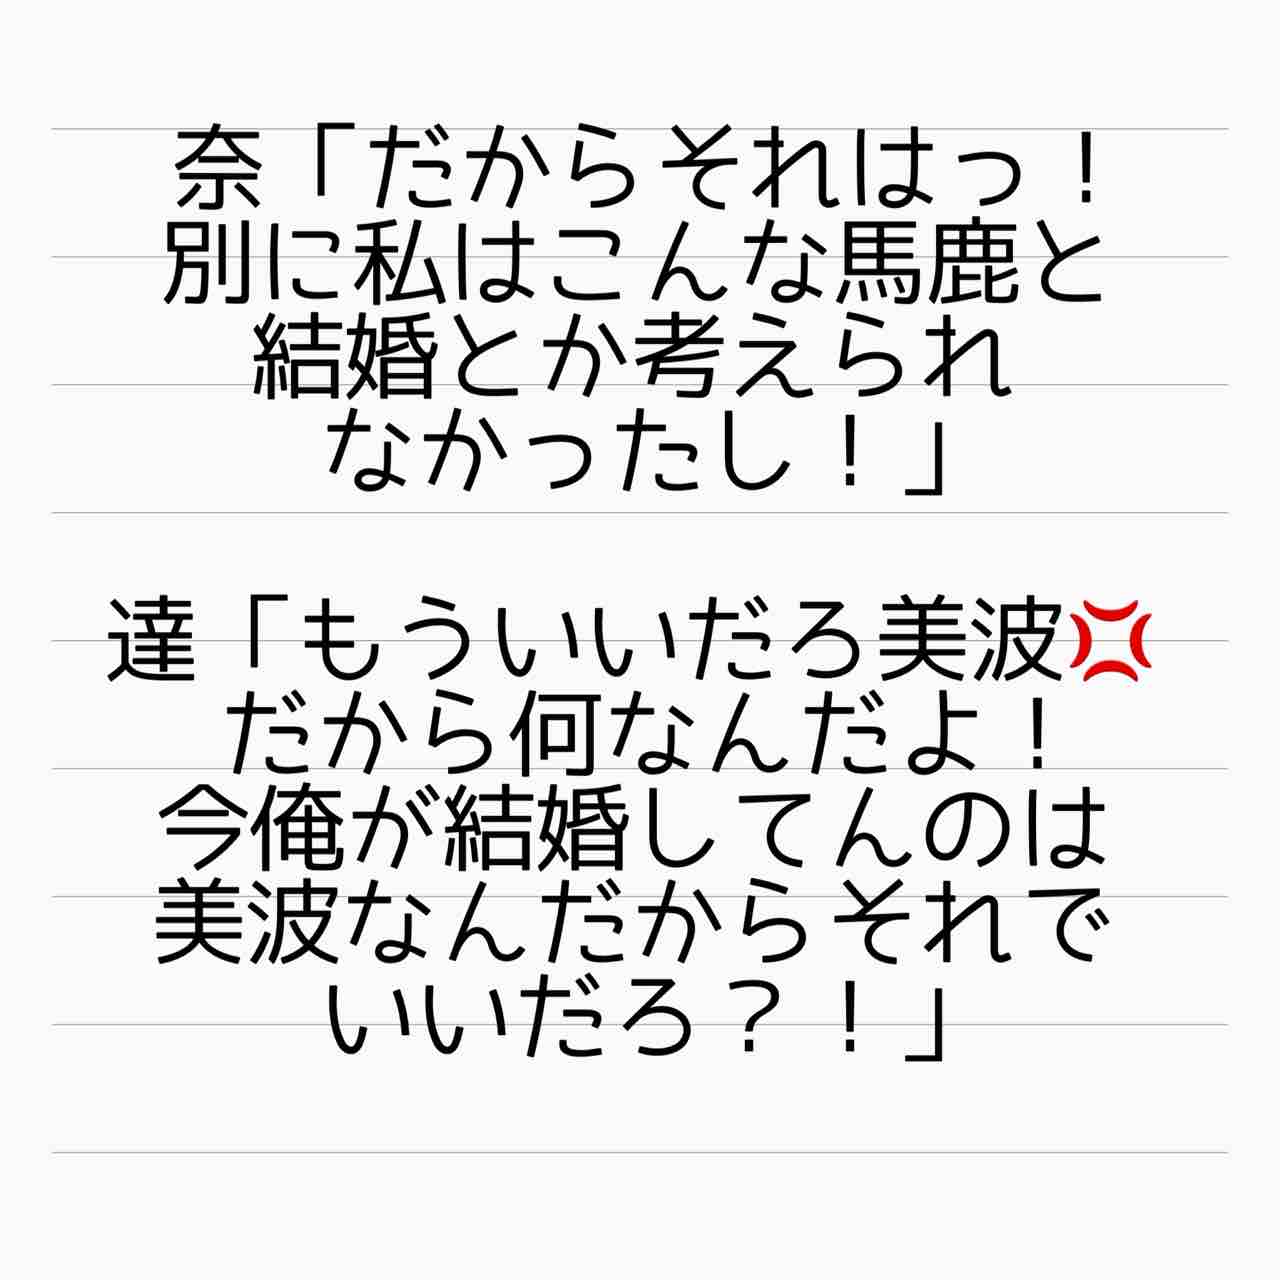 奈「だからそれはっ！
別に私はこんな馬鹿と
結婚とか考えられ
なかったし！」
達「もういいだろ美波💢
だから何なんだよ！
今俺が結婚してんのは
美波なんだからそれで
いいだろ？！」